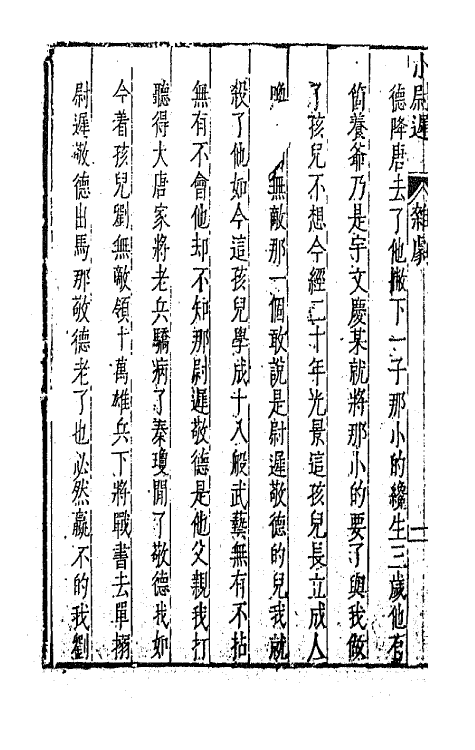 小尉遲 雜劇 一
德降唐去了他撇下一子那小的纔生三歲他有
箇養爺乃是宇文慶某就將那小的要了與我做
了孩兒不想今經二十年光景這孩兒長立成人
喚 無敵那一個敢說是尉遲敬德的兒我就
殺了他如今這孩兒學成十八般武藝無有不拈
無有不會他却不知那尉遲敬德是他父親我打
聽得大唐家將老兵驕病了秦瓊閒了敬德我如
今着孩兒劉無敵領十萬雄兵下將戰書去單搦
尉遲敬德出馬那敬德老了也必然贏不的我劉